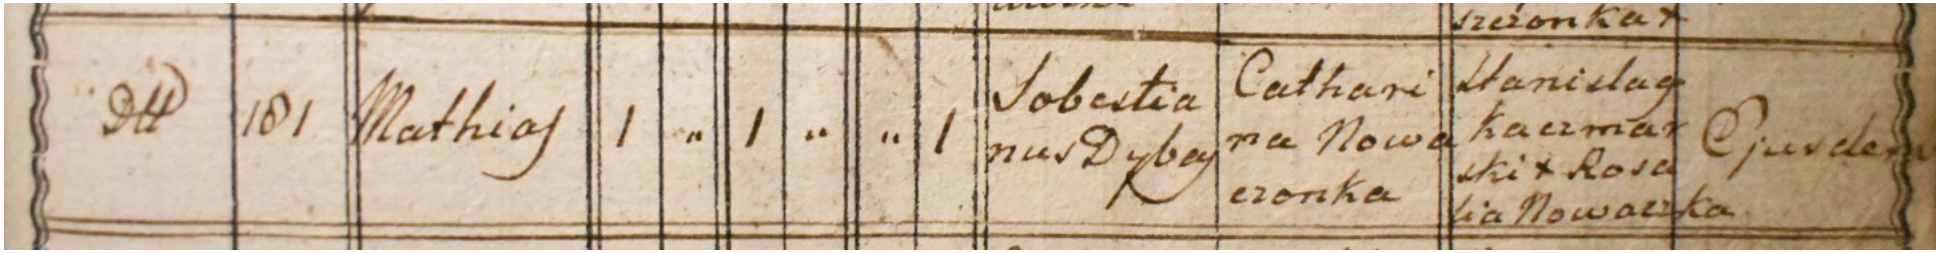 szczonka +
Dtt 181 Mathias 1 " 1 " " 1
Sobestia
nus Dybaś
Cathari
na Nowa
czonka
Stanislaʒ
Kaczmar
ski + Rosa
lia Nowaczka
Ejusdem